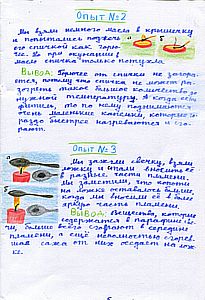 Опыт №2
Мы взяли немного масла в крышечку
и попытались поджечь
его спичкой как горю-
чее. Но при окунании в
масло спичка только потухла.
Вывод: Горючее от спички не загора-
ется, потому что спичка не может ра-
зогреть такое большое количество до
нужной температуры. А когда есть
фитиль, то по нему поднимаются
очень маленькие капельки, которые го-
раздо быстрее нагреваются и сго-
рают.
Опыт №3
Мы зажгли свечку, взяли
ложку и стали вносить её
в разные части пламени.
Мы заметили, что копоти
на ложке оставалось больше,
когда мы вносили её в более
яркую часть пламени.
Вывод: Вещества, которые
содержатся в парафине све-
чи, больше всего сгорают в середине
пламени, а ещё не полностью сгорев-
шая сажа от них оседает на лож-
ке.